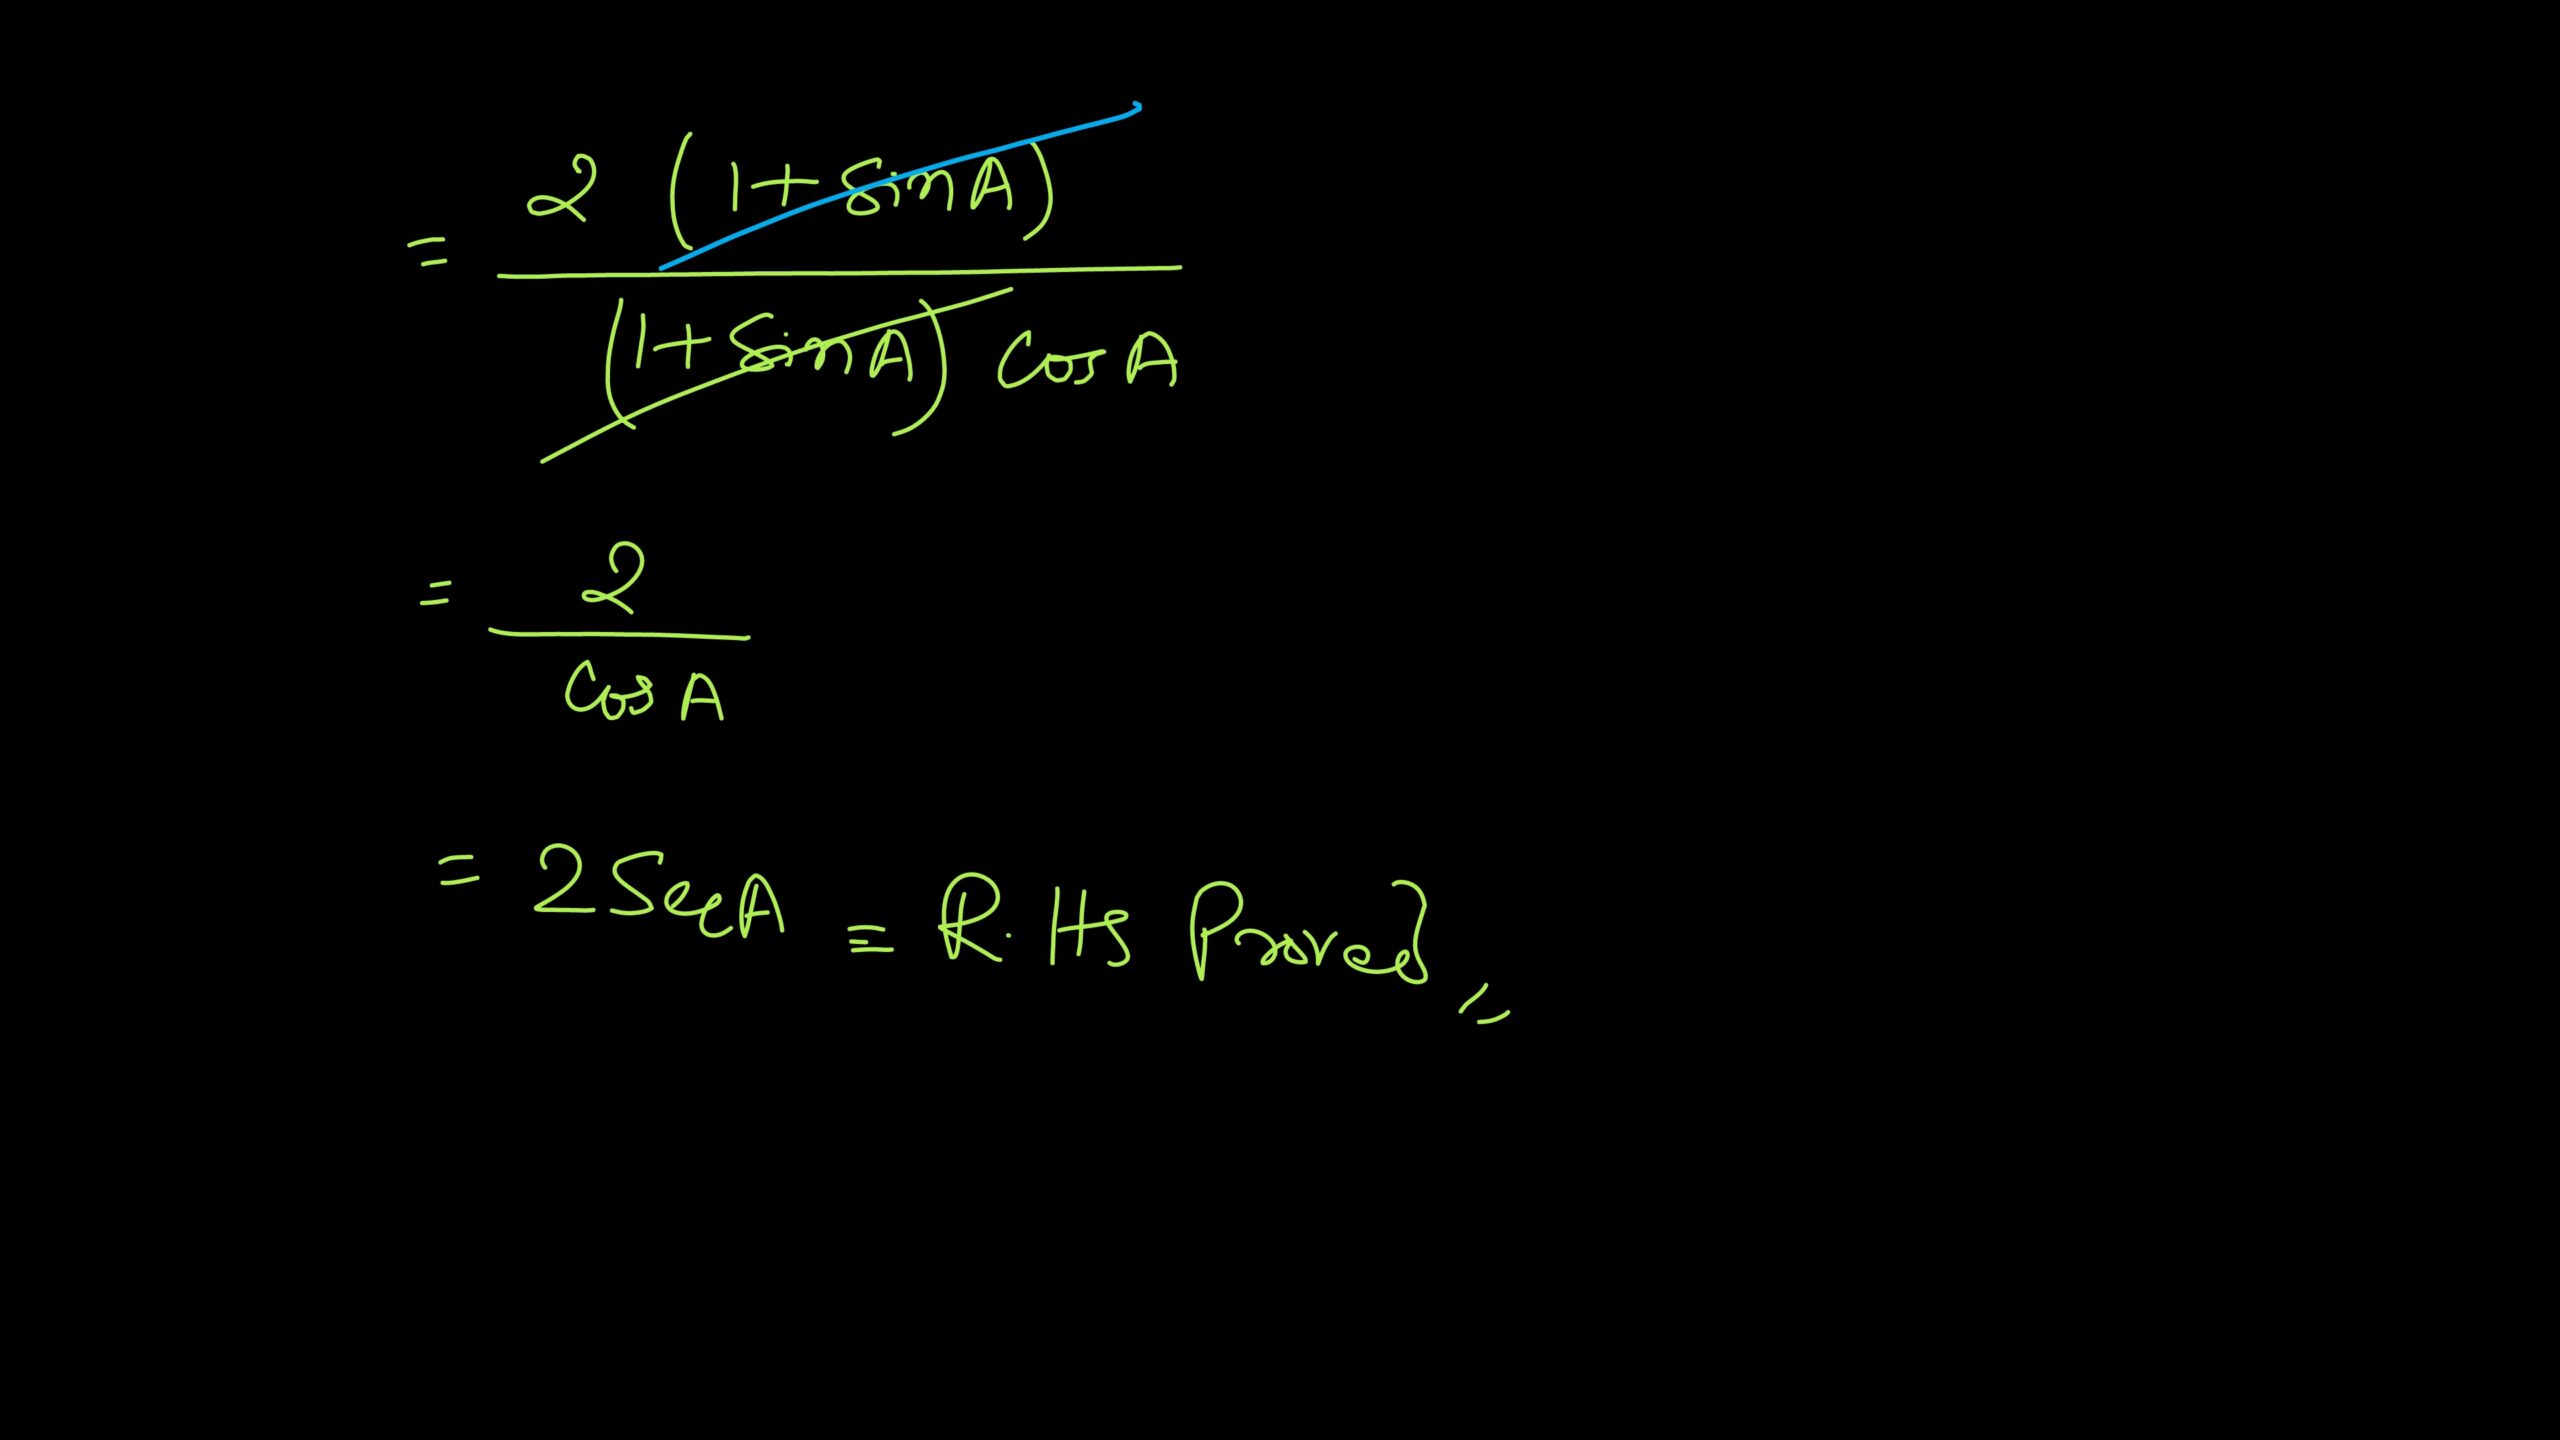 = 2 (1 + sin A)
(1 + sin A) cos A
= 2
cos A
= 2 Sec A = R.Hs Proved,,